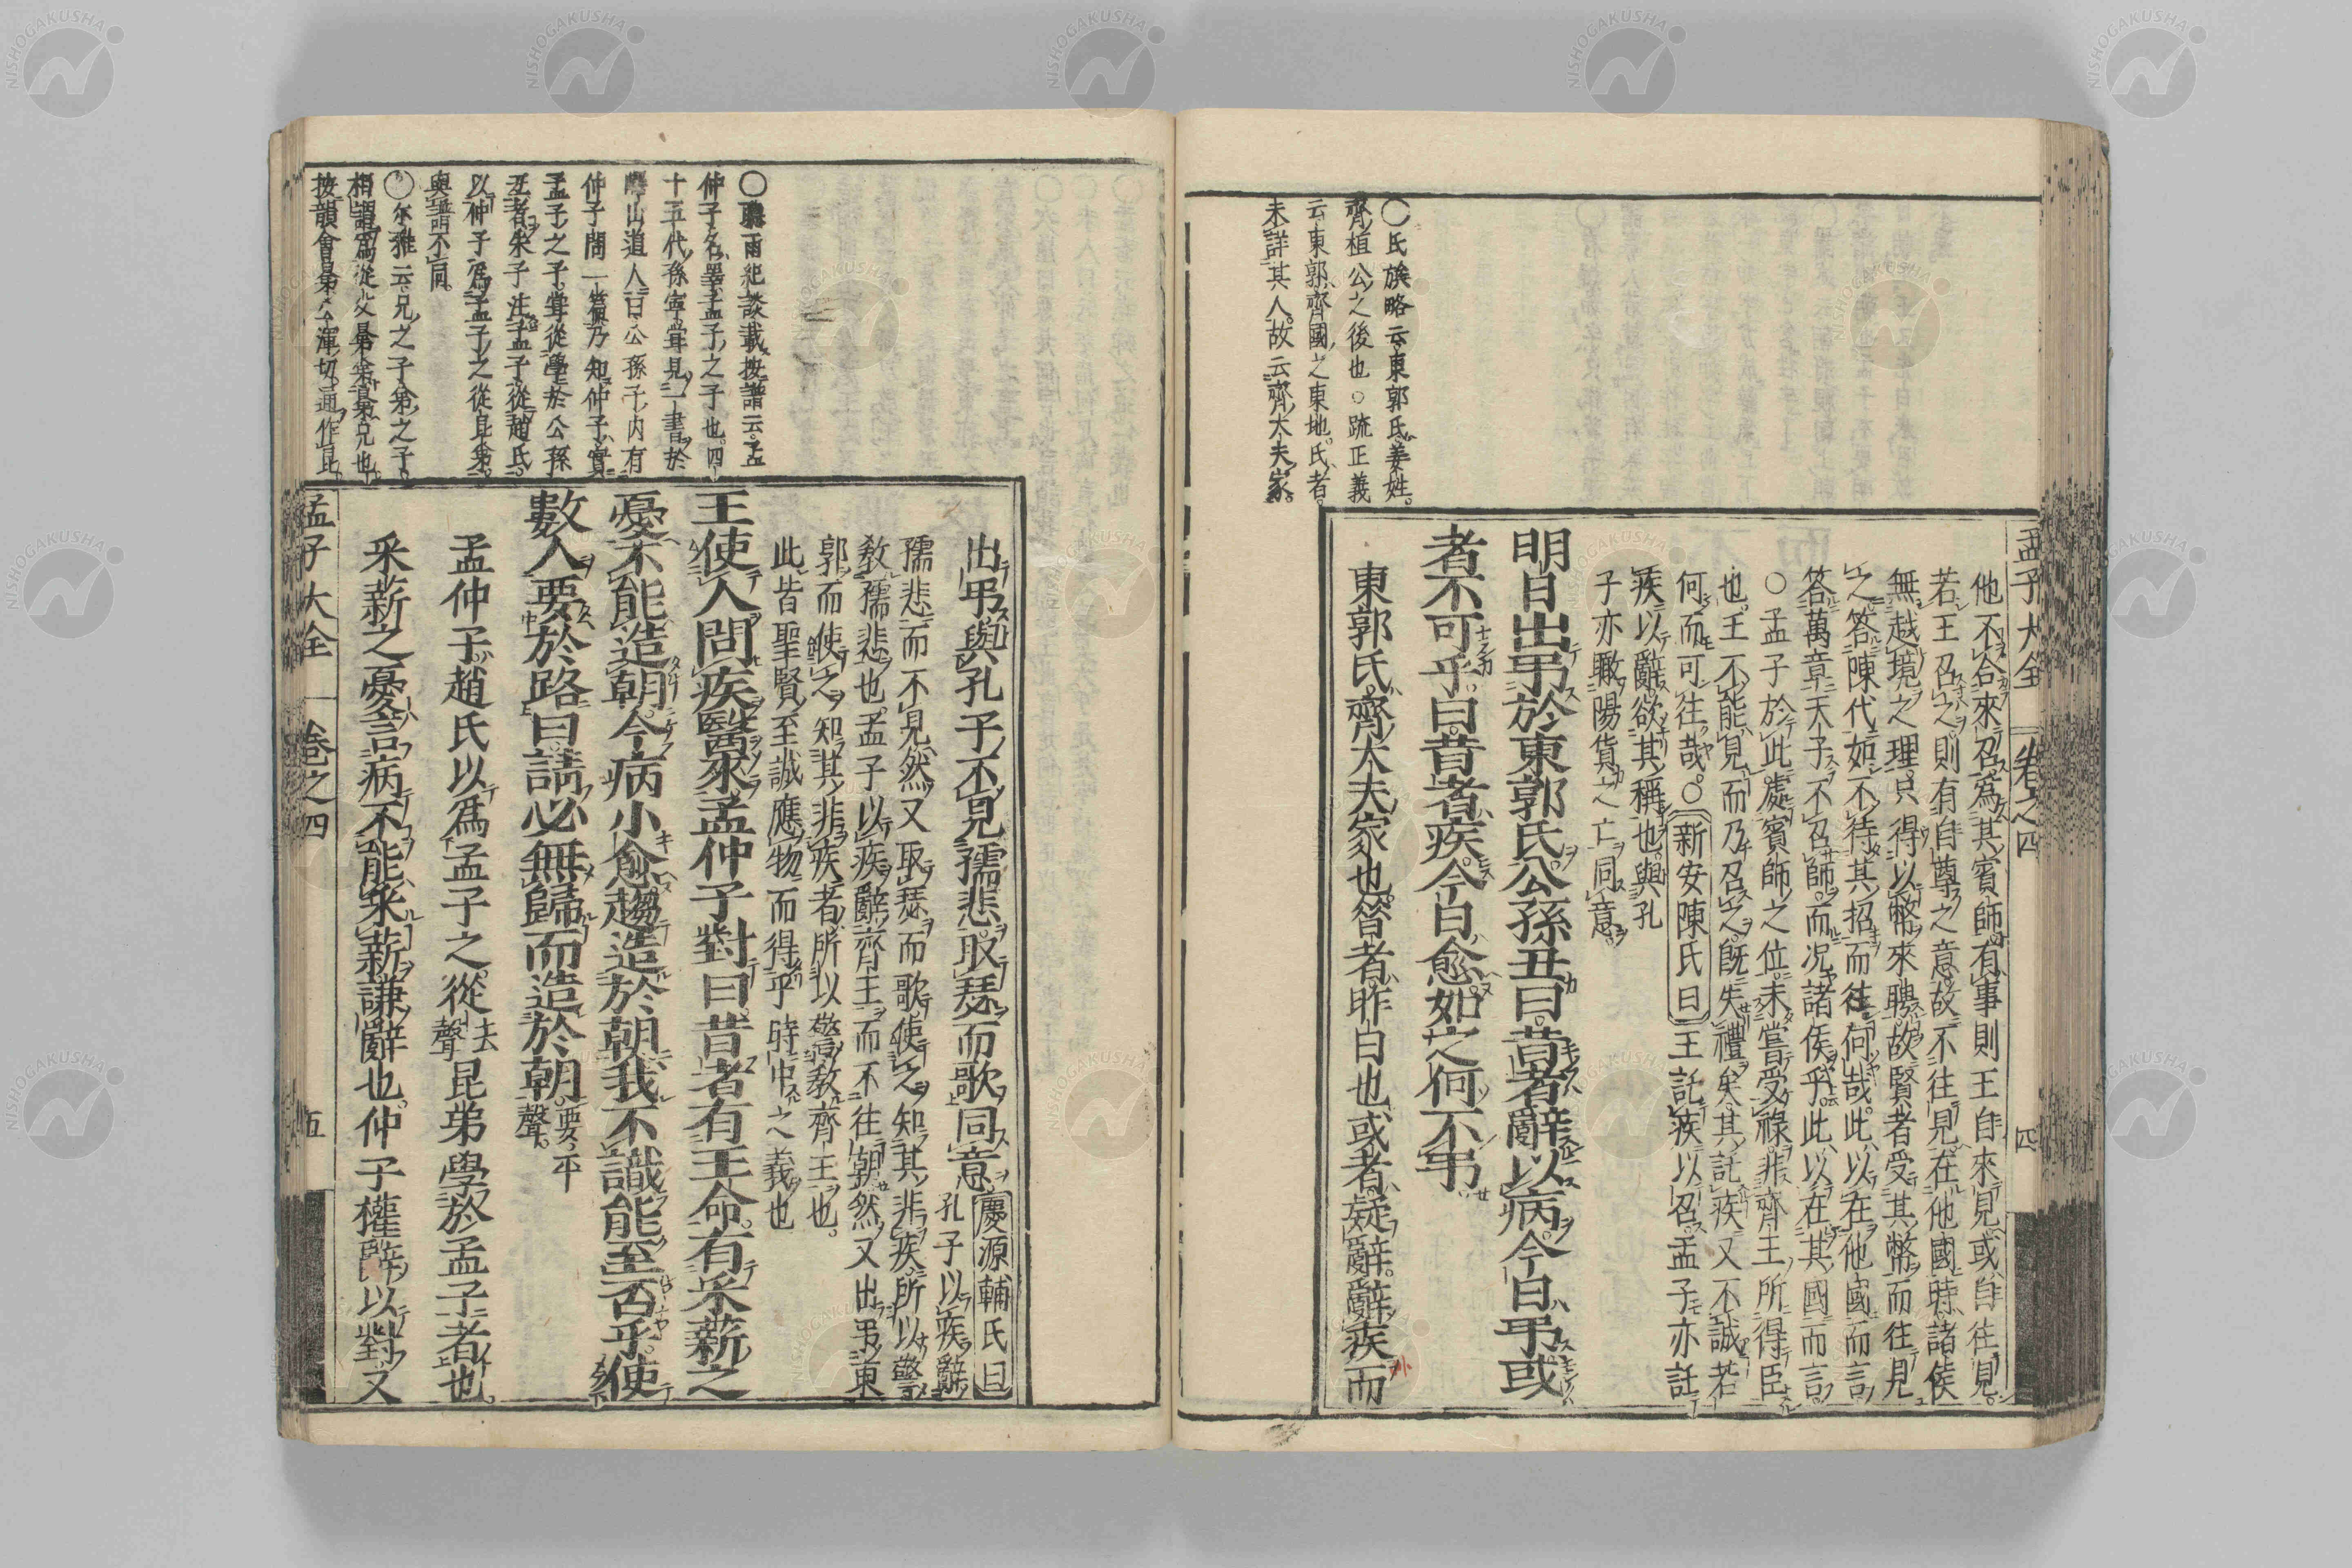 孟子大全 卷之四 四
他不合來召爲其賓師有事則王自來見或自往見
若王召之則有自尊之意故不往見在他國時諸侯
無越境之理只得以幣來聘故賢者受其幣而往見
之答陳代如不待其招而往何哉此以在他國而言
答萬章天子不召師而况諸侯乎此以在其國而言
○孟子於此處賓師之位未嘗受祿非齊王所得臣
也王不能見而乃召之既失禮矣其託疾又不誠若
何而可往哉○新安陳氏曰王託疾以召孟子亦託
疾以辭欲其稱也與孔
子亦瞰陽貨之亡同意
明日出弔於東郭氏公孫丑曰昔者辭以病今日弔或
者不可乎曰昔者疾今日愈如之何不弔
東郭氏齊大夫家也昔者昨日也或者疑辭辭疾而
○氏族略云東郭氏姜姓
齊植公之後也○疏正義
云東郭齊國之東地氏者
未詳其人故云齊大夫家
出弔與孔子不見孺悲取瑟而歌同意慶源輔氏曰
孔子以疾辭
孺悲而不見然又取瑟而歌使之知其非疾所以警
教孺悲也孟子以疾辭齊王而不往朝然又出弔東
郭而使之知其非疾者所以警教齊王也
此皆聖賢至誠應物而得乎時中之義也
王使人問疾醫來孟仲子對曰昔者有王命有采薪之
憂不能造朝今病小愈趨造於朝我不識能至否乎使
數人要於路曰請必無歸而造於朝要平聲
孟仲子趙氏以爲孟子之從去聲昆弟學於孟子者也
采薪之憂言病不能采薪謙辭也仲子權辭以對又
○聽雨紀談載按譜云孟
仲子名睪孟子之子也四
十五代孫寧嘗見一書於
嶧山道人曰公孫子内有
仲子問一篇乃知仲子實
孟子之子嘗從學於公孫
丑者朱子注孟子從趙氏
以仲子爲孟子之從昆弟
與譜不同
○尓雅云兄之子弟之子
相謂爲從父晜弟晜兄也
按韻會晜公渾切通作昆
孟子大全 卷之四 五